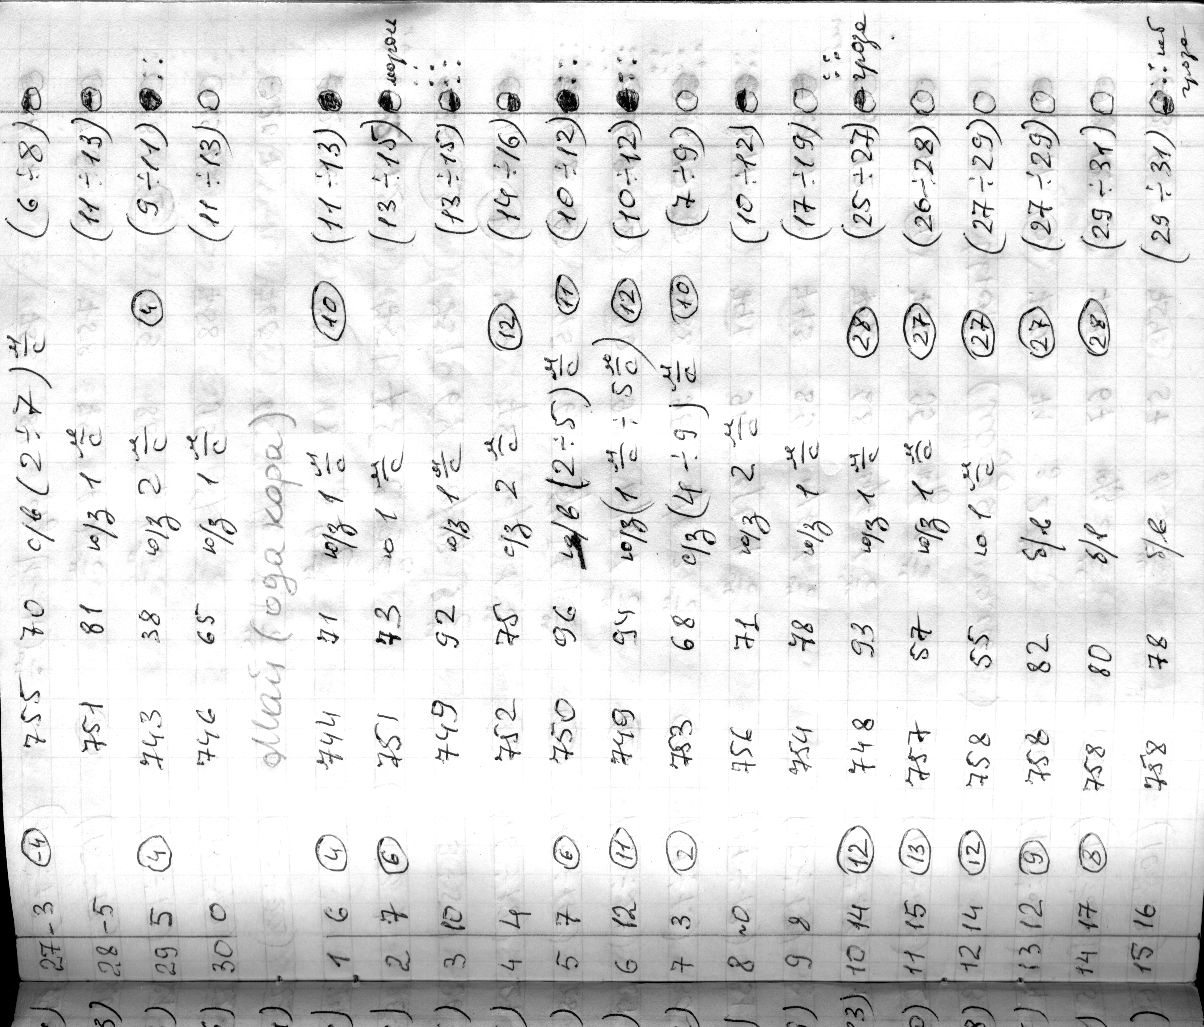 27 -3 (-4) 755 70 с/в (2÷7) м/с (6÷8)
28 -5 751 81 ю/з 1 м/с (11÷13)
29 5 (4) 743 38 ю/з 2 м/с (4) (9÷11)
30 0 746 65 ю/з 1 м/с (11÷13)
Май (года кора)
1 6 (4) 744 71 ю/з 1 м/с (10) (11÷13)
2 7 (6) 751 73 ю 1 м/с (13÷15)
3 10 749 92 ю/з 1 м/с (13÷15)
4 4 752 75 с/з 2 м/с (12) (14÷16)
5 7 (6) 750 96 /в (2÷5) м/с (11) (10÷12)
6 12 (11) 749 94 ю/з (1 м/с ÷ 5 м/с) (12) (10÷12)
7 3 (2) 753 68 с/з (4÷9) м/с (10) (7÷9)
8 ~0 756 71 ю/з 2 м/с (10÷12)
9 8 754 78 ю/з 1 м/с (17÷19)
10 14 (12) 748 93 ю/з 1 м/с (28) (25÷27) гроза
11 15 (13) 757 57 ю/з 1 м/с (27) (26÷28)
12 14 (12) 758 55 ю 1 м/с (27) (27÷29)
13 12 (9) 758 82 б/в (27) (27÷29)
14 17 (8) 758 80 б/в (28) (29÷31)
15 16 758 78 б/в (29÷31) гроза